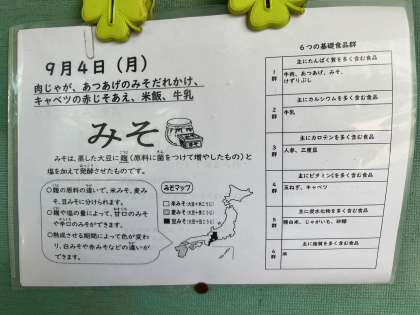 9月4日（月）
肉じゃが、あつあげのみそだれかけ、
キャベツの赤じそあえ、米飯、牛乳
みそ
みそは、蒸した大豆に麹（原料に菌をつけて増やしたもの）と
塩を加えて発酵させたものです。
○麹の原料の違いで、米みそ、麦み
そ、豆みそに分けられます。
○麹や塩の量によって、甘口のみそ
や辛口のみそができます。
○熟成させる期間によって色が変わ
り、白みそや赤みそなどの違いが
できます。
みそマップ
米みそ（大豆＋米こうじ）
麦みそ（大豆＋麦こうじ）
豆みそ（大豆＋豆こうじ）
6つの基礎食品群
1群
主にたんぱく質を多く含む食品
牛肉、あつあげ、みそ、
けずりぶし
2群
主にカルシウムを多く含む食品
牛乳
3群
主にカロテンを多く含む食品
人参、三度豆
4群
主にビタミンCを多く含む食品
玉ねぎ、キャベツ
5群
主に炭水化物を多く含む食品
精白米、じゃがいも、砂糖
6群
主に脂質を多く含む食品
油